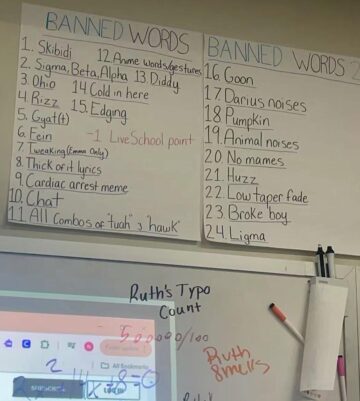 BANNED WORDS
1. Skibidi
2. Sigma, Beta, Alpha
3. Ohio
4. Rizz
5. Gyat(t)
6. Fein
7. Tweaking (Emma Only)
8. Thick of it lyrics
9. Cardiac arrest meme
10. Chat
11. All Combos of "tuah" & "hawk"
12. Anime words/gestures
13. Diddy
14 Cold in here
15. Edging
-1 LiveSchool point
BANNED WORDS 2
16. Goon
17. Darius noises
18 Pumpkin
19. Animal noises
20 No names
21. Huzz
22. Low taper fade
23. Broke boy
24. Ligma
Ruth's Typo
Count
500000/100
Ruth
smells
All Bookmarks